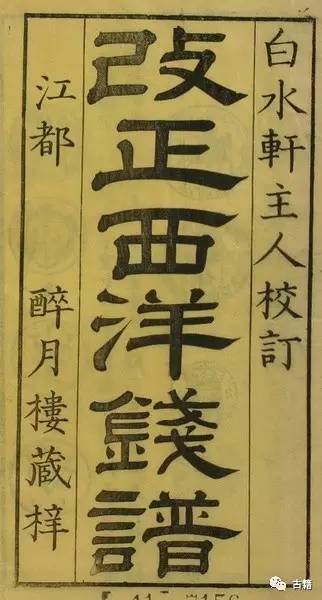 白水軒主人校訂
改正西洋錢譜
江都 醉月樓蔵梓
古籍